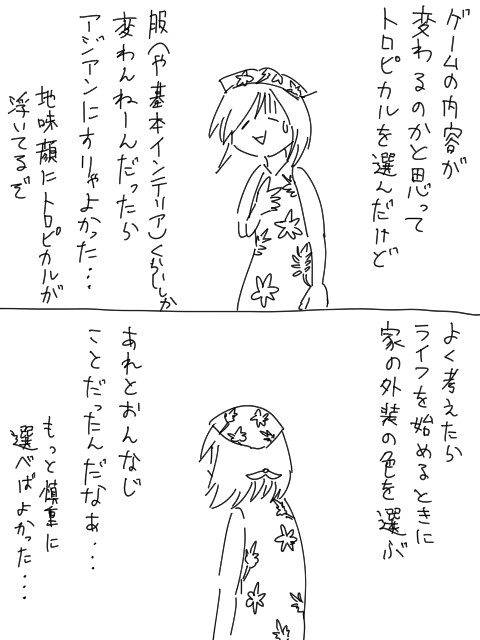 ゲームの内容が
変わるのかと思って
トロピカルを選んだけど
服(や基本インテリア)くらいしか
変わんねーんだったら
アジアンにすりゃよかった…
地味顔にトロピカルが
浮いてるぞ
よく考えたら
ライフを始めるときに
家の外装の色を選ぶ
あれとおんなじ
ことだったんだなぁ…
もっと慎重に
選べばよかった…